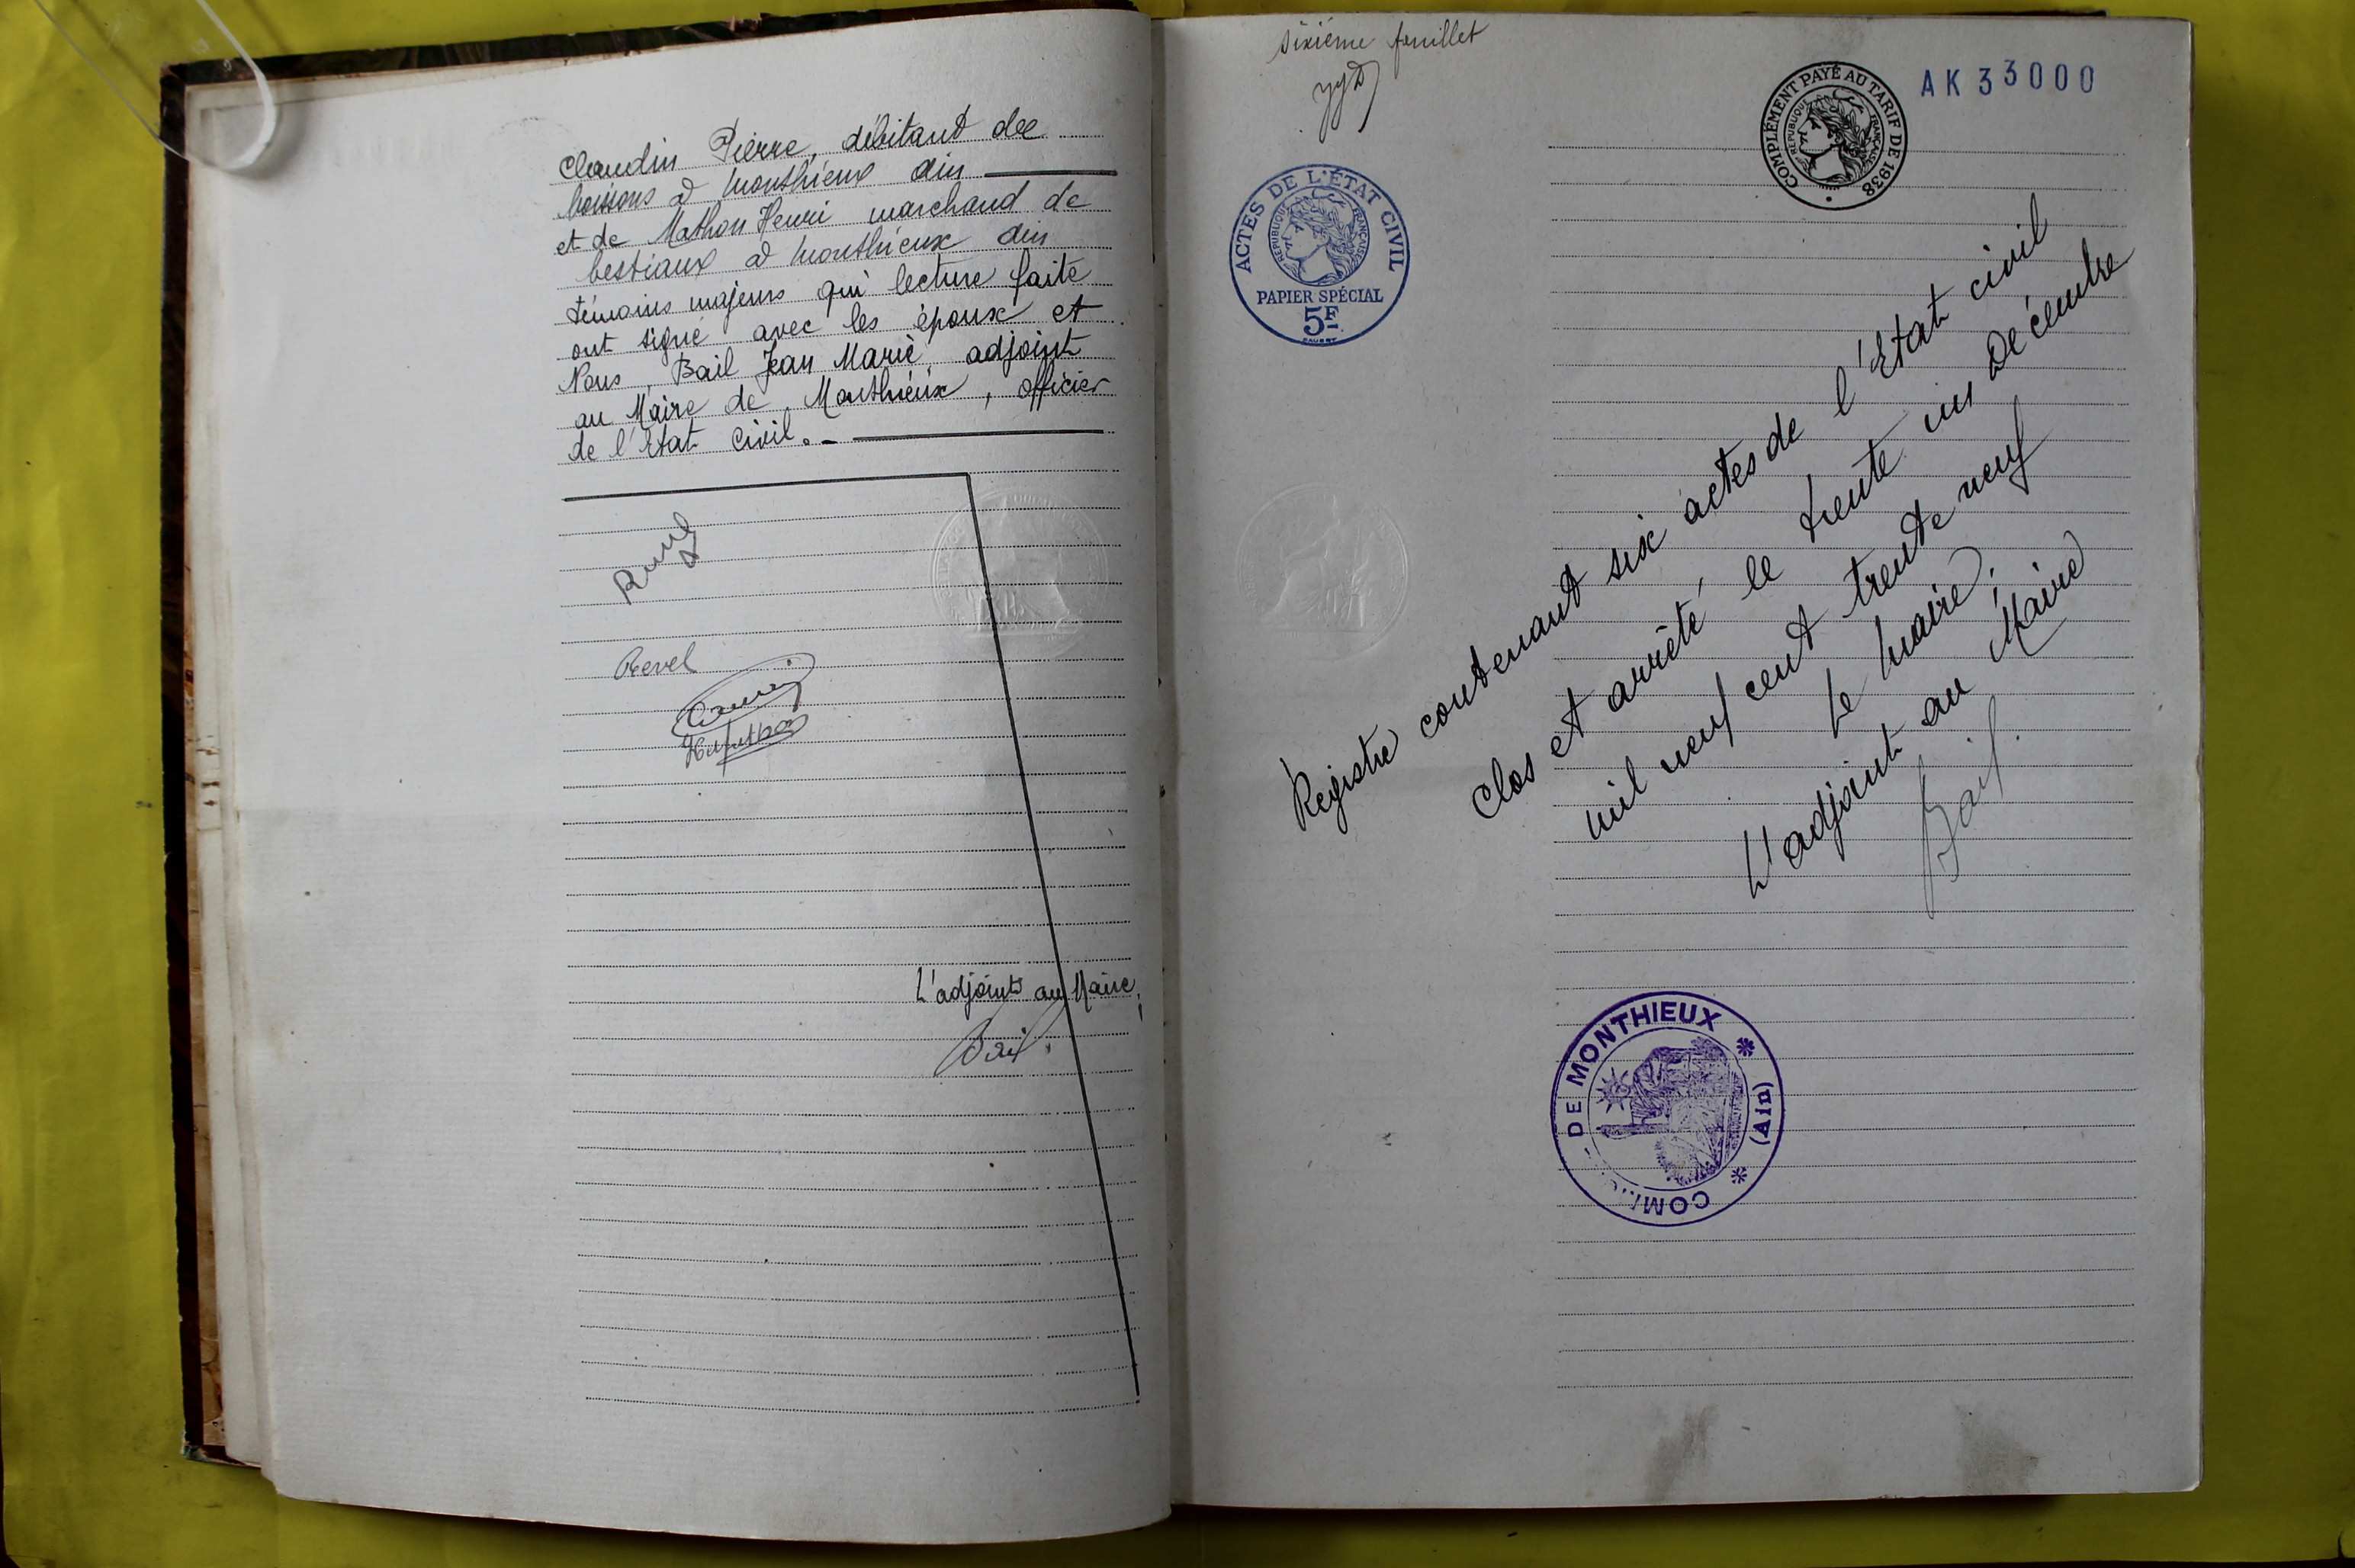 Claudin Pierre, débitant de
boissons à Monthieux Ain
et de Mathon Henri marchand de
bestiaux à Monthieux Ain
témoins majeurs qui lecture faite
ont signé avec les époux et
Nous, Bail Jean Marie adjoint
au Maire de Monthieux, officier
de l'Etat Civil.-
Revel
L'adjoint au Maire,
Bail.
sixième feuillet
COMPLÉMENT PAYÉ AU TARIF DE 1938
RÉPUBLIQUE FRANÇAISE
AK 33000
ACTES DE L'ÉTAT CIVIL
RÉPUBLIQUE FRANÇAISE
PAPIER SPÉCIAL
5F
Registre contenant six actes de l'Etat civil
clos et arrêté le trente un Décembre
mil neuf cent trente neuf
Le Maire,
L'adjoint au Maire
Bail.
DE MONTHIEUX
(Ain)